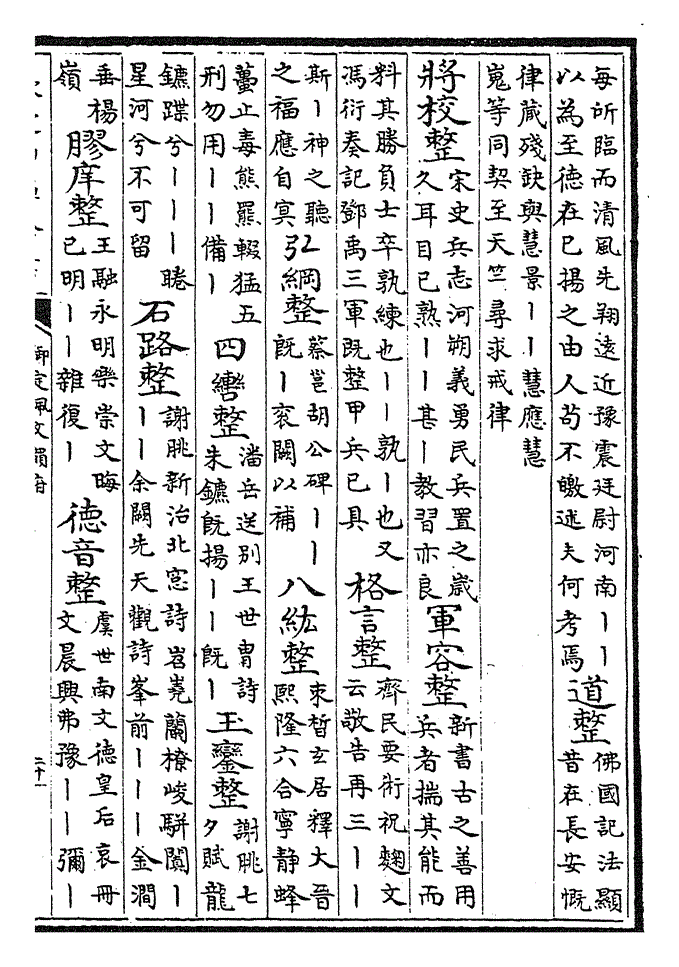 每所臨而清風先翔遠近豫震廷尉河南丨丨
以為至德在已揚之由人苟不皦述夫何考焉
道整
佛國記法顯
昔在長安慨
律藏殘缺與慧景丨丨慧應慧
嵬等同契至天竺尋求戒律
將校整
宋史兵志河朔義勇民兵置之歲
久耳目已熟丨丨甚丨教習亦良
軍容整
新書古之善用
兵者揣其能而
料其勝負士卒孰練也丨丨孰丨也又
馮衍奏記鄧禹三軍既整甲兵已具
格言整
齊民要術祝麴文
云敬告再三丨丨
斯丨神之聽
之福應自冥
弘綱整
蔡邕胡公碑丨丨
既丨袞闕以補
八紘整
束晳玄居釋大晉
熙隆六合寧靜蜂
蠆止毒熊羆輟猛五
刑勿用丨丨備丨
四轡整
潘岳送別王世胄詩
朱鑣既揚丨丨既丨
玉鑾整
謝朓七
夕賦龍
鑣蹀兮丨丨丨睠
星河兮不可留
石路整
謝朓新治北窓詩岧嶤蘭橑峻駢闐丨
丨丨余闕先天觀詩峯前丨丨丨金澗
垂楊
嶺
膠庠整
王融永明樂崇文晦
已明丨丨雜復丨
德音整
虞世南文德皇后哀冊
文晨興弗豫丨丨彌丨
御定佩文韻府